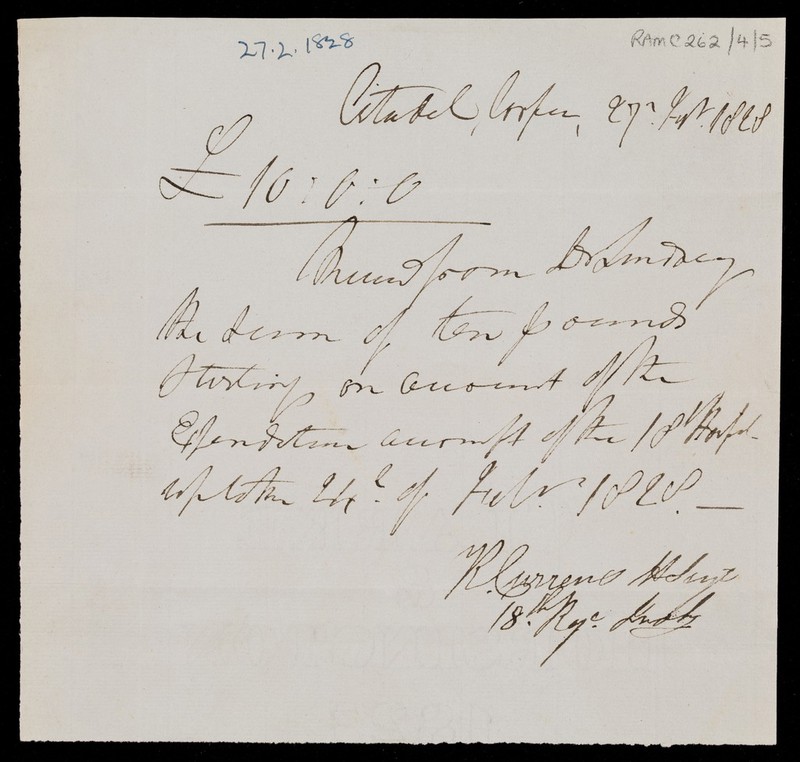 27.2.1828
RAMC262/4/5
Citadel, Corfu, 27th. Feby. 1828
£10:0:0
Received from Dr Lindsey
the sum of ten pounds
Sterling on account of the
Expenditure account of the 18th Hospl.
up to the 24th. of Feby. 1828. —
R. Currens H Surgt
18th. Regt.